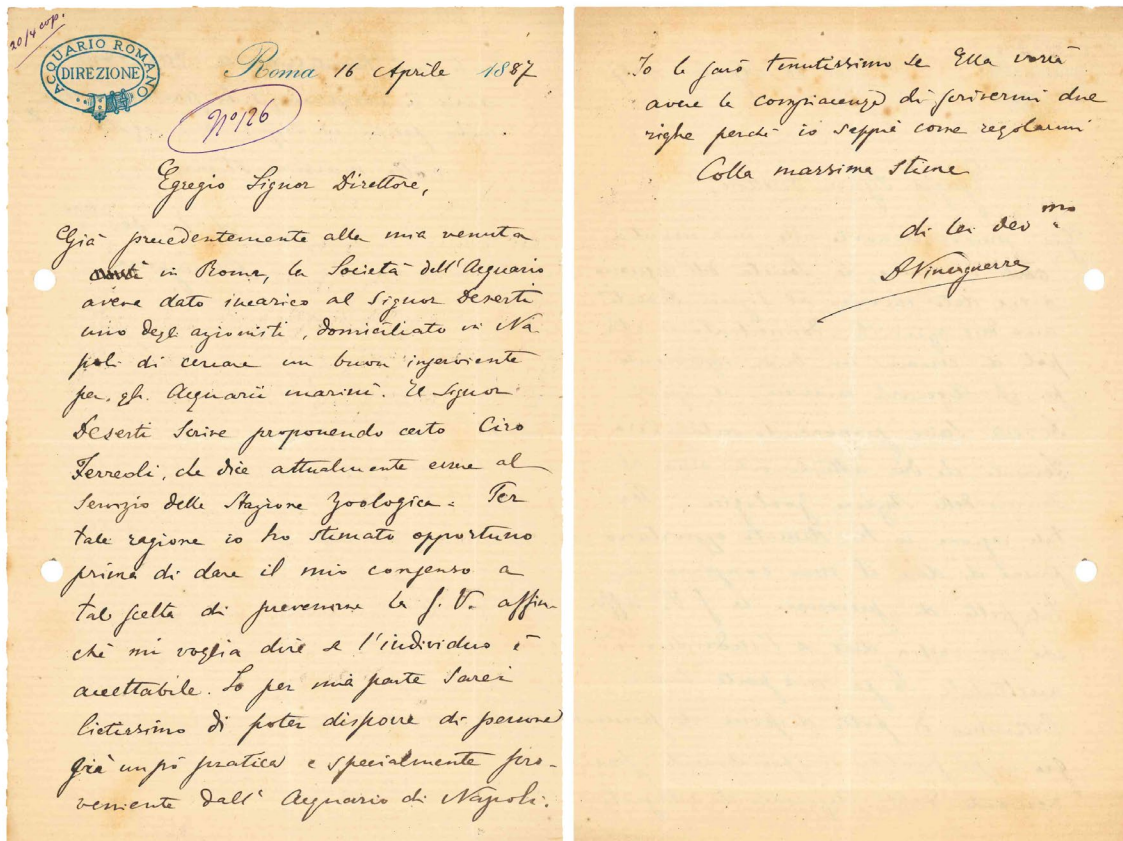 20/4 cop.
ACQUARIO ROMANO
DIREZIONE
Roma 16 Aprile 1887
N° 126
Egregio Signor Direttore,
Già precedentemente alla mia venuta
in Roma, la Società dell'Acquario
aveva dato incarico al Signor Deserti
uno degli azionisti, domiciliato in Na
poli di cercare un buon inserviente
per gli Acquarii marini. Il Signor
Deserti scrive proponendo certo Ciro
Ferreoli, che dice attualmente essere al
Servizio della Stazione Zoologica. Per
tale ragione io ho stimato opportuno
prima di dare il mio consenso a
tale scelta di prevenirne la S. V. affin-
chè mi voglia dire se l'individuo è
accettabile. Io per mia parte sarei
lietissimo di poter disporre di persona
già un pò pratica e specialmente pro-
veniente dall'Acquario di Napoli.
Io le sarò tenutissimo se Ella vorrà
avere la compiacenza di scrivermi due
righe perchè io sappia come regolarmi
Colla massima Stima
di lei dev mo
DVinciguerra